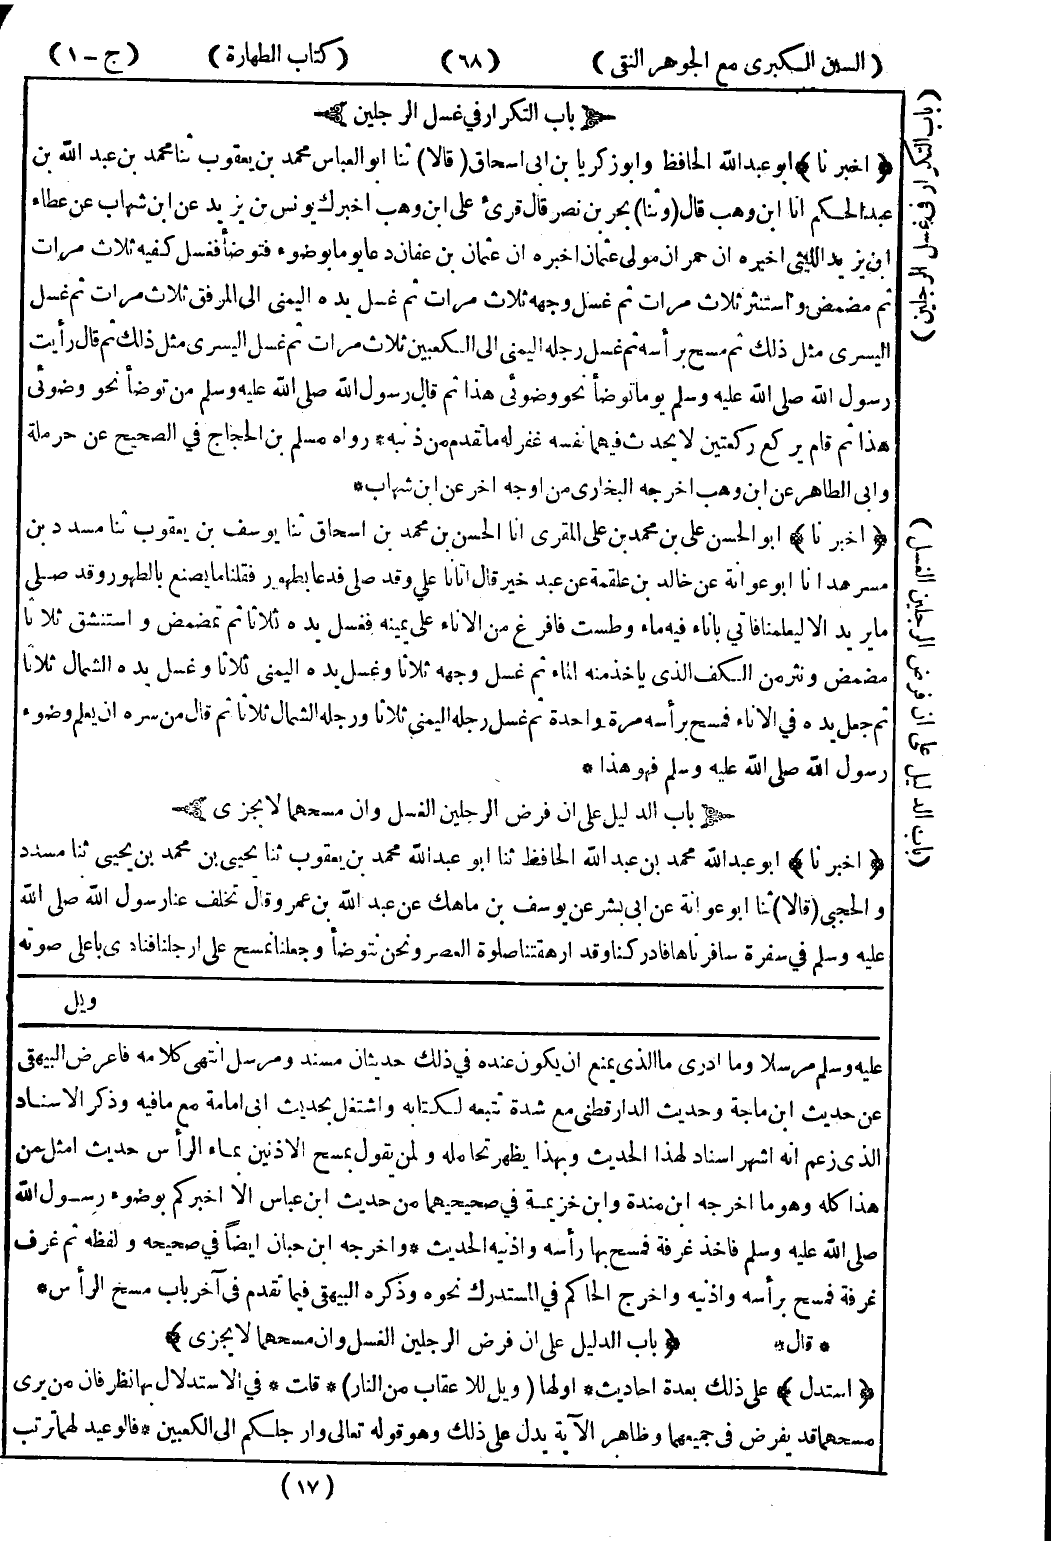 ( السنن الكبرى مع الجوهر النقى ) (٦٨) ( كتاب الطهارة ) ( ج - ١ )
باب التكرار في غسل الرجلين
﴿ اخبرنا ﴾ ابو عبدالله الحافظ وابو زكريا بن ابى اسحاق (قالا) ثنا ابو العباس محمد بن يعقوب ثنا محمد بن عبد الله بن
عبد الحكم انا ابن وهب قال (وثنا) بحر بن نصر قال قرئ على ابن وهب اخبرك يونس بن يزيد عن ابن شهاب عن عطاء
ابن يزيد الليثي اخبره ان حمران مولى عثمان اخبره ان عثمان بن عفان دعا يوما بوضوء فتوضأ فغسل كفيه ثلاث مرات
ثم مضمض واستنثر ثلاث مرات ثم غسل وجهه ثلاث مرات ثم غسل يده اليمنى الى المرفق ثلاث مرات ثم غسل
اليسرى مثل ذلك ثم مسح برأسه ثم غسل رجله اليمنى الى الكعبين ثلاث مرات ثم غسل اليسرى مثل ذلك ثم قال رأيت
رسول الله صلى الله عليه وسلم يوما توضأ نحو وضوئى هذا ثم قال رسول الله صلى الله عليه وسلم من توضأ نحو وضوئى
هذا ثم قام يركع ركعتين لا يحدث فيهما نفسه غفر له ما تقدم من ذنبه * رواه مسلم بن الحجاج في الصحيح عن حرملة
وابى الطاهر عن ابن وهب اخرجه البخارى من اوجه اخر عن ابن شهاب *
﴿ اخبرنا ﴾ ابو الحسن على بن محمد بن على المقرى انا الحسن بن محمد بن اسحاق ثنا يوسف بن يعقوب ثنا مسدد بن
مسرهد انا ابو عوانة عن خالد بن علقمة عن عبد خير قال اتانا علي وقد صلى فدعا بطهور فقلنا ما يصنع بالطهور وقد صلى
ما يريد الا ليعلمنا فاتي باناء فيه ماء وطست فافرغ من الاناء على يمينه فغسل يده ثلاثا ثم تمضمض و استنشق ثلاثا
مضمض ونثر من الكف الذى ياخذ منه الماء ثم غسل وجهه ثلاثا وغسل يده اليمنى ثلاثا وغسل يده الشمال ثلاثا
ثم جعل يده في الاناء فمسح برأسه مرة واحدة ثم غسل رجله اليمنى ثلاثا ورجله الشمال ثلاثا ثم قال من سره ان يعلم وضوء
رسول الله صلى الله عليه وسلم فهو هذا *
باب الدليل على ان فرض الرجلين الغسل وان مسحهما لا يجزى
﴿ اخبرنا ﴾ ابو عبدالله محمد بن عبد الله الحافظ ثنا ابو عبدالله محمد بن يعقوب ثنا يحيى بن محمد بن يحيى ثنا مسدد
والحجبي (قالا) ثنا ابو عوانة عن ابى بشر عن يوسف بن ماهك عن عبد الله بن عمرو قال تخلف عنا رسول الله صلى الله
عليه وسلم في سفرة سافرناها فادركنا وقد ارهقتنا صلوة العصر ونحن نتوضأ وجعلنا نمسح على ارجلنا فنادى باعلى صوته
ويل
عليه وسلم مرسلا وما ادرى ما الذى يمنع ان يكون عنده في ذلك حديثان مسند ومرسل انتهى كلامه فاعرض البيهقي
عن حديث ابن ماجة وحديث الدارقطنى مع شدة تتبعه لكتابه واشتغل بحديث ابى امامة مع ما فيه وذكر الاسناد
الذى زعم انه اشهر اسناد لهذا الحديث وبهذا يظهر تحامله ولمن يقول بمسح الاذنين بماء الرأس حديث امثل من
هذا كله وهو ما اخرجه ابن مندة وابن خزيمة في صحيحيهما من حديث ابن عباس الا اخبركم بوضوء رسول الله
صلى الله عليه وسلم فاخذ غرفة فمسح بها رأسه واذنيه الحديث * واخرجه ابن حبان ايضاً في صحيحه ولفظه ثم غرف
غرفة فمسح برأسه واذنيه واخرج الحاكم في المستدرك نحوه وذكره البيهقى فيما تقدم فى آخر باب مسح الرأس *
* قال * ﴿ باب الدليل على ان فرض الرجلين الغسل وان مسحهما لا يجزى ﴾
﴿ استدل ﴾ على ذلك بعدة احاديث * اولها ( ويل للاعقاب من النار ) * قلت * في الاستدلال بها نظر فان من يرى
مسحهما قد يفرض فى جميعهما وظاهر الآية يدل على ذلك وهو قوله تعالى وارجلكم الى الكعبين * فالوعيد لهما ترتب
(١٧)
( باب التكرار في غسل الرجلين )
( باب الدليل على ان فرض الرجلين الغسل )